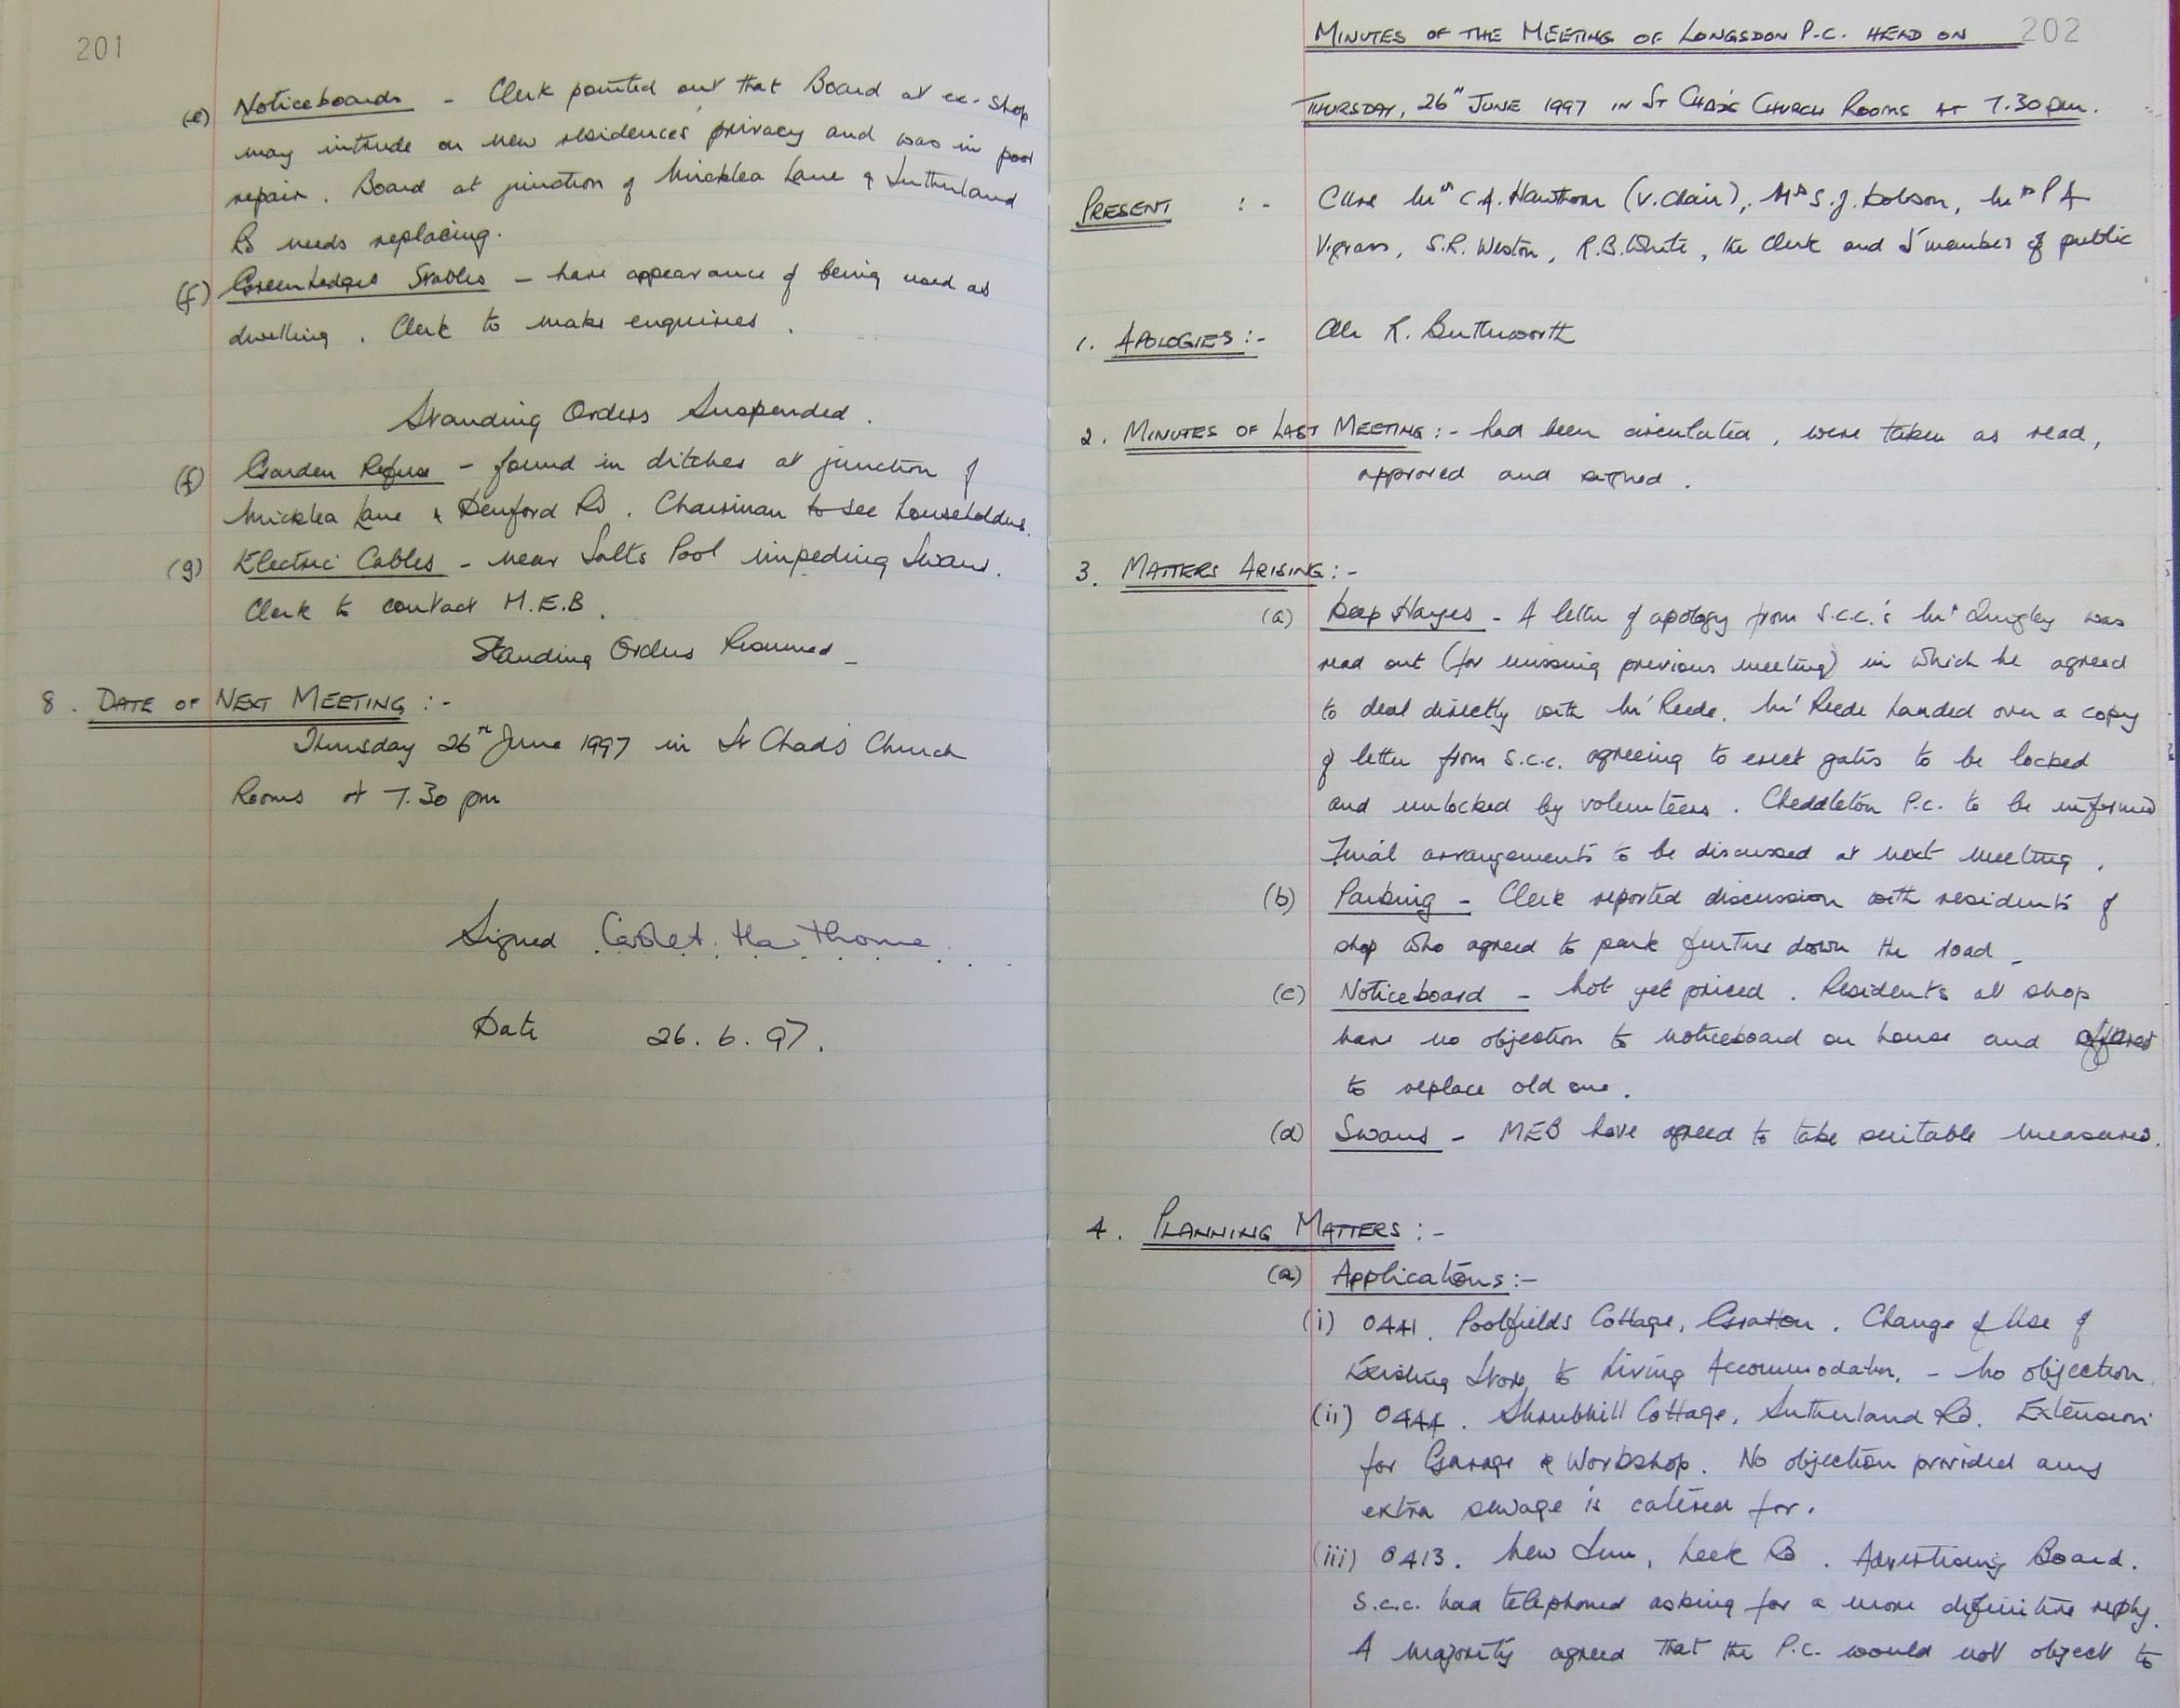 201
(e) Noticeboards - Clerk pointed out that Board at ex-shop
may intrude on new residences' privacy and was in poor
repair. Board at junction of Micklea Lane & Sutherland
Rd needs replacing.
(f) Greenhedges Stables - have appearance of being used as
dwelling. Clerk to make enquiries.
Standing Orders Suspended.
(f) Garden Refuse - found in ditches at junction of
Micklea Lane & Denford Rd. Chairman to see householders.
(g) Electric Cables - near Salts Pool impeding Swans.
Clerk to contact M.E.B.
Standing Orders Resumed -
8. DATE OF NEXT MEETING :-
Thursday 26th June 1997 in St Chad's Church
Rooms at 7.30 pm
Signed Hawthorne
Date 26.6.97.
202
MINUTES OF THE MEETING OF LONGSDON P.C. HEAD ON
THURSDAY, 26th JUNE 1997 IN ST CHAD'S CHURCH ROOMS AT 7.30pm.
PRESENT :- Cllrs Mrs C.A. Hawthorn (V. Chair), Mrs S.J. Dobson, Mrs P A
Vigrass, S.R. Weston, R.B. White, the Clerk and 5 member of public
1. APOLOGIES :- Cllr R. Butterworth
2. MINUTES OF LAST MEETING :- had been circulated, were taken as read,
approved and signed.
3. MATTERS ARISING :-
(a) Deep Hayes - A letter of apology from S.C.C.'s Mr Quigley was
read out (for missing previous meeting) in which he agreed
to deal directly with Mr Reede. Mr Reede handed over a copy
of letter from S.C.C. agreeing to erect gates to be locked
and unlocked by volunteers. Cheddleton P.C. to be informed
Final arrangements to be discussed at next meeting.
(b) Parking - Clerk reported discussion with residents of
shop who agreed to park further down the road -
(c) Noticeboard - Not yet priced. Residents at shop
have no objection to noticeboard on house and offered
to replace old one.
(d) Swans - MEB have agreed to take suitable measures.
4. PLANNING MATTERS :-
(a) Applications :-
(i) 0441. Poolfields Cottage, Gratton. Change of Use of
Existing Store to Living Accommodatn. - No objection.
(ii) 0444. Shrubhill Cottage, Sutherland Rd. Extension
for Garage & Workshop. No objection provided any
extra sewage is catered for.
(iii) 0413. New Inn, Leek Rd. Advertising Board.
S.C.C. had telephoned asking for a more definitive reply.
A majority agreed that the P.C. would not object to